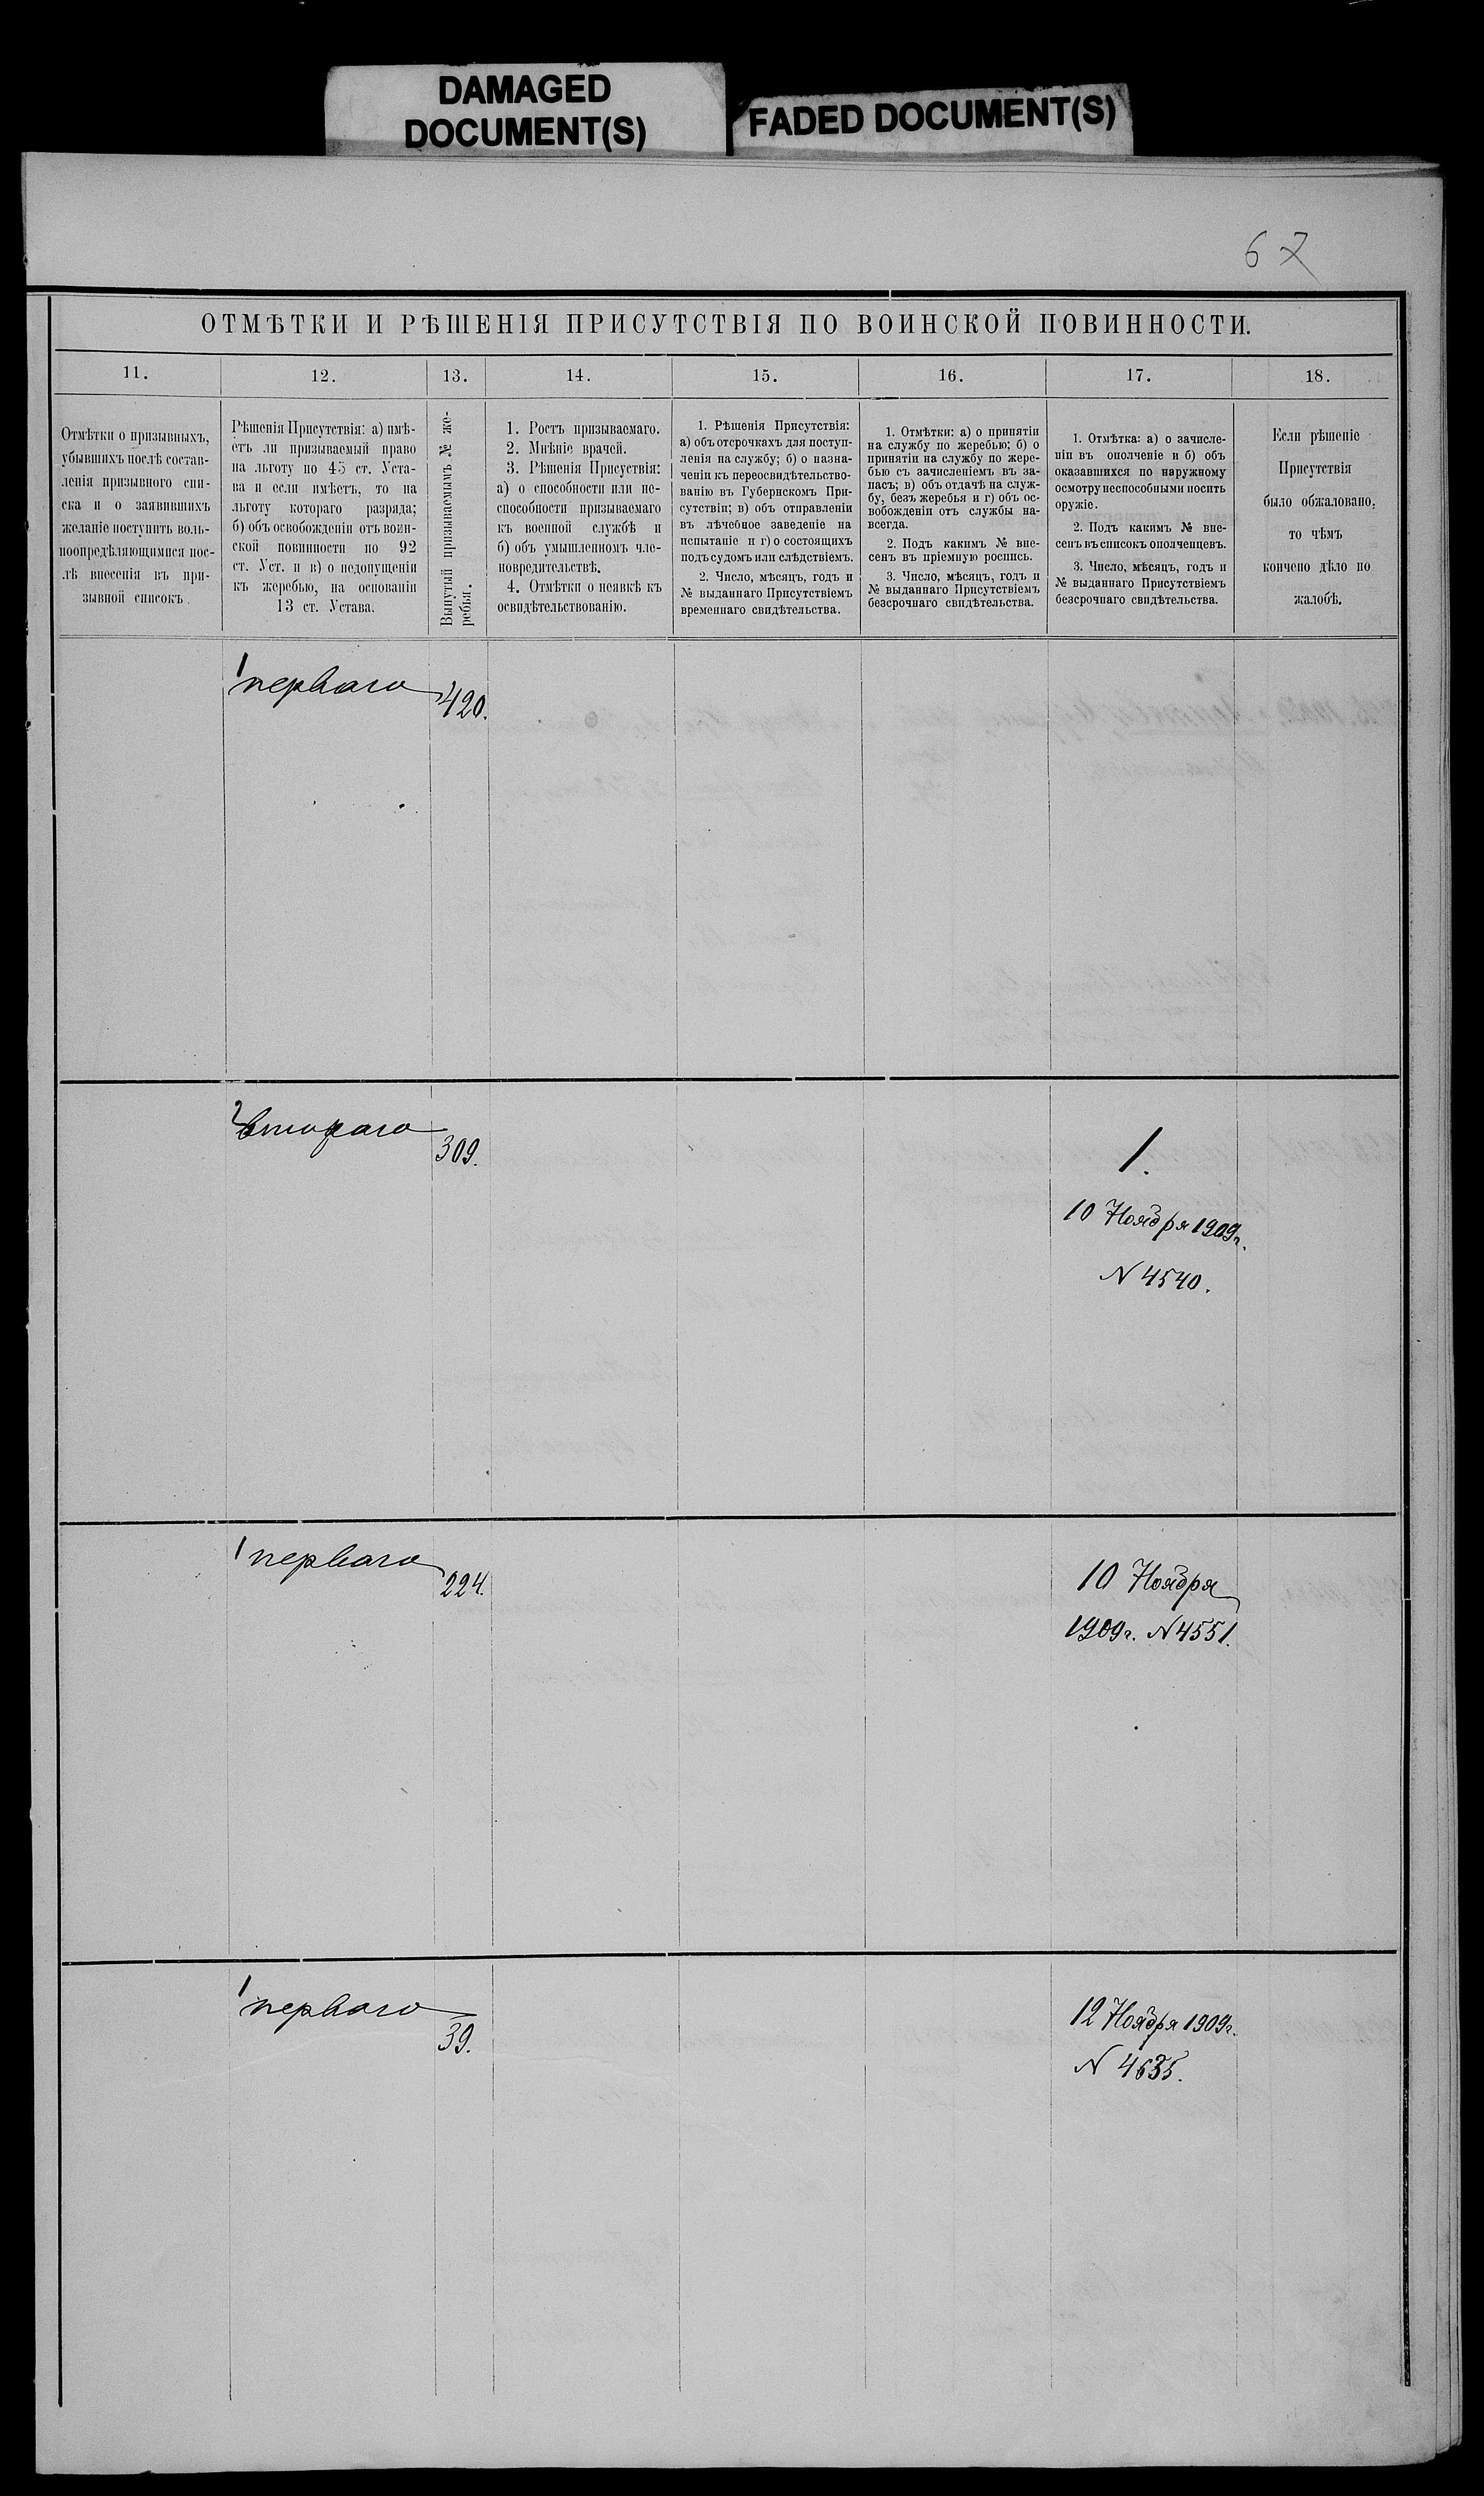 DAMAGED
DOCUMENT(S)
FADED DOCUMENT(S)
67
ОТМѢТКИ И РѢШЕНІЯ ПРИСУТСТВІЯ ПО ВОИНСКОЙ ПОВИННОСТИ.
11.
12.
13.
14.
15.
16.
17.
18.
Отмѣтки о призывныхъ,
убывшихъ послѣ состав-
ленія призывного спи-
ска и о заявившихъ
желаніе поступить воль-
ноопредѣляющимися пос-
лѣ внесенія въ при-
зывной списокъ.
Рѣшенія Присутствія: а) имѣ-
етъ ли призываемый право
на льготу по 45 ст. Уста-
ва и если имѣетъ, то на
льготу котораго разряда;
б) объ освобожденіи отъ воин-
ской повинности по 92
ст. Уст. и в) о недопущеніи
къ жеребью, на основаніи
13 ст. Устава.
Вынутый призываемымъ № же-
ребья.
1. Ростъ призываемаго.
2. Мнѣніе врачей.
3. Рѣшенія Присуствія:
а) о способности или не-
способности призываемаго
къ военной службѣ и
б) объ умышленномъ чле-
новредительствѣ.
4. Отмѣтки о неявкѣ къ
освидѣтельствованію.
1. Рѣшенія Присутствія:
а) объ отсрочкахъ для поступ-
ленія на службу; б) о назна-
ченіи къ переосвидѣтельство-
ванію въ Губернскомъ При-
сутствіи; в) объ отправленіи
въ лѣчебное заведеніе на
испытаніе и г) о состоящихъ
подъ судомъ или слѣдствіемъ.
2. Число, мѣсяцъ, годъ и
№ выданнаго Присутствіемъ
временнаго свидѣтельства.
1. Отмѣтки: а) о принятіи
на службу по жеребью; б) о
принятіи на службу по жере-
бью съ зачисленіемъ въ за-
пасъ; в) объ отдачѣ на служ-
бу, безъ жеребья и г) объ ос-
вобожденіи отъ службы на-
всегда.
2. Подъ какимъ № вне-
сенъ въ пріемную роспись.
3. Число, мѣсяцъ, годъ и
№ выданнаго Присутствіемъ
безсрочнаго свидѣтельства.
1. Отмѣтка: а) о зачисле-
ніи въ ополченіе и б) объ
оказавшихся по наружному
осмотру неспособными носить
оружіе.
2. Подъ какимъ № вне-
сенъ въ списокъ ополченцевъ.
3. Число, мѣсяцъ, годъ и
№ выданнаго Присутствіемъ
безсрочнаго свидѣтельства.
Если рѣшеніе
Присутствія
было обжаловано,
то чѣмъ
кончено дѣло по
жалобѣ.
1
перваго
420.
2
втораго
309.
1.
10 Ноября 1909г.
N 4540.
1 перваго
224.
10 Ноября
1909г. N 4551.
1
перваго
39.
12 Ноября 1909г.
N 4635.